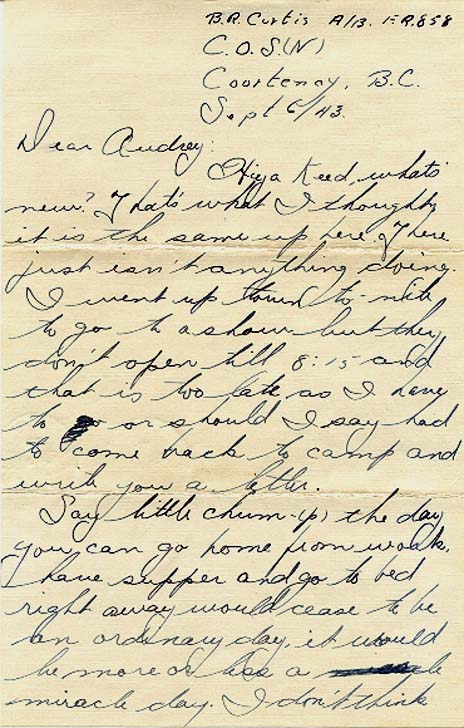 B.R. Curtis A/B. F.R. 858
C.O.S.(N)
Courtenay, B.C.
Sept 6/43.
Dear Audrey:
Hiya Keed, what's
new? That's what I thought,
it is the same up here. There
just isn't anything doing.
I went up town to-nite
to go to a show but they
don't open till 8:15 and
that is too late as I have
to or should I say had
to come back to camp and
write you a letter.
Say little chum-ip, the day
you can go home from work,
have supper and go to bed
right away would cease to be
an ordinary day, it would
be more or less a
miracle day. I don't think